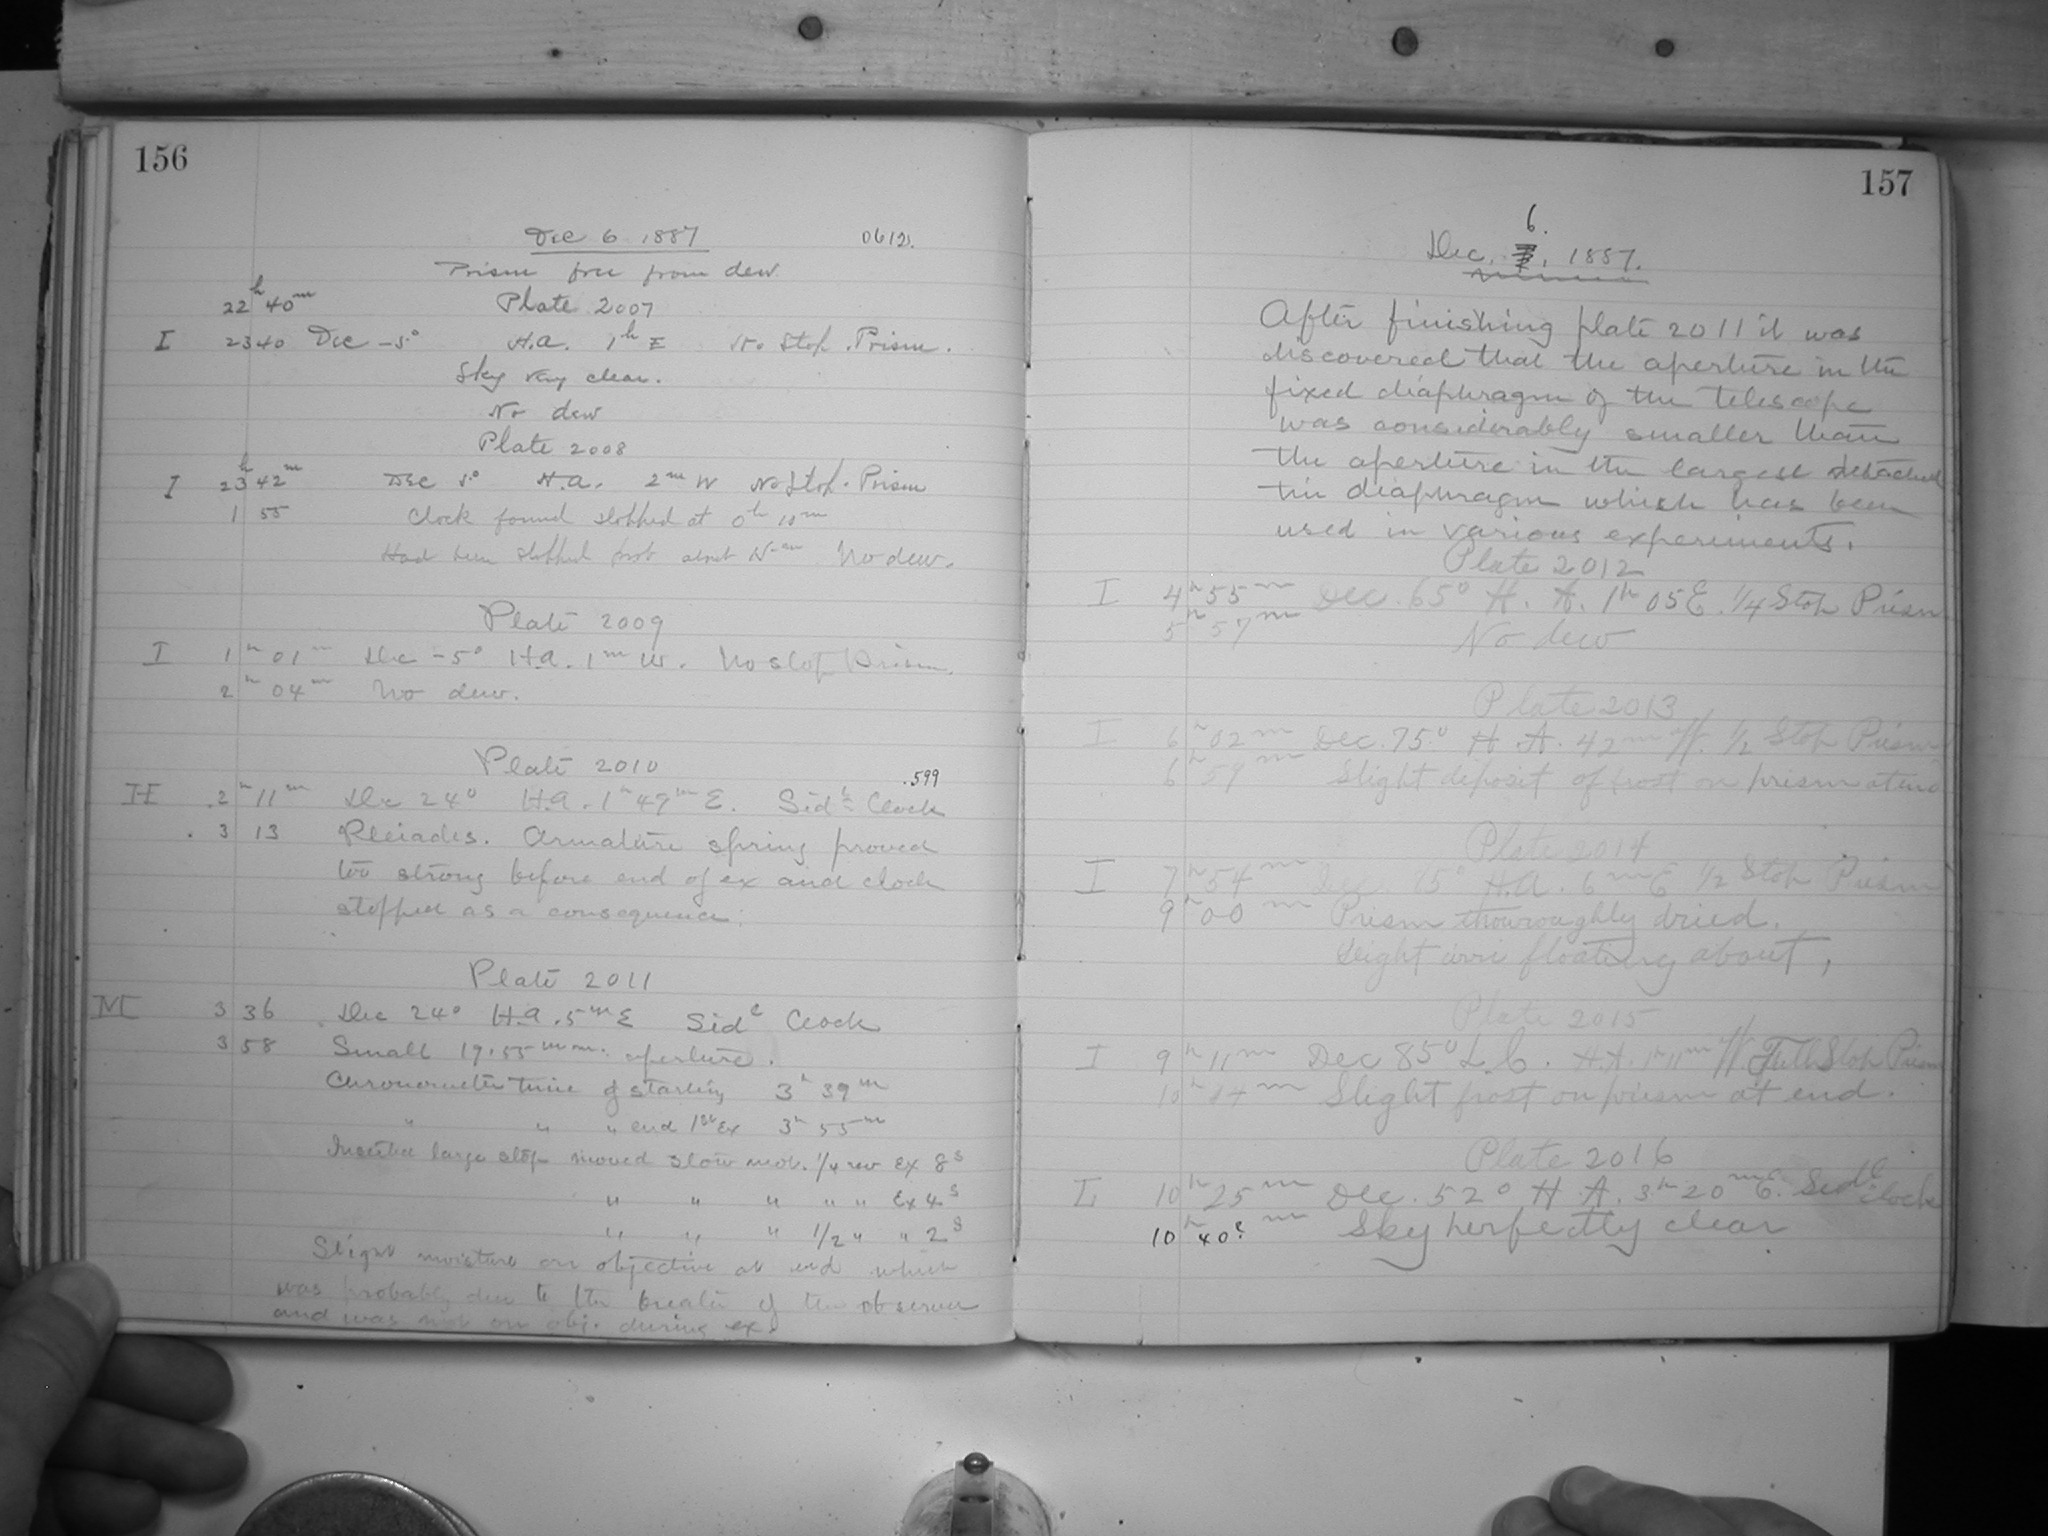 156
Dec 6 1887
0612.
Prism free from dew.
22h 40m Plate 2007
I 23 40 Dec -5° H.a. 1h E No Stop. Prism.
Sky very clear.
No dew
Plate 2008
I 23h 42m Dec 5° H.a. 2m W No Stop. Prism
1 55 Clock found stopped at 0h 10m
Had been stopped about No dew.
Plate 2009
I 1h 01m Dec -5° H.a. 1m W. No stop Prism.
2h 04m No dew.
Plate 2010
.599
H 2h 11m Dec 24° H.a. 1h 49m E. Sidl Clock
3 13 Pleiades. Armature spring proved
too strong before end of ex and clock
stopped as a consequence.
Plate 2011
M 3 36 Dec 24° H.a. 5m E Sidl Clock
3 58 Small 19.55 mm. aperture.
Chronometer time of starting 3h 39m
" " " end 1st Ex 3h 55m
Inserted large stop moved slow mot. 1/4 rev Ex 8s
" " " " " Ex 4s
" " " 1/2 " " 2s
Slight moisture on objective at end which
was probably due to the breath of the observer
and was not on obj. during ex.
157
6.
Dec. 1887.
After finishing plate 2011 it was
discovered that the aperture in the
fixed diaphragm of the telescope
was considerably smaller than
the aperture in the largest detached
tin diaphragm which has been
used in various experiments.
Plate 2012
I 4h 55m Dec. 65° H. A. 1h 05 E. 1/4 Stop Prism
5h 57m No dew
Plate 2013
I 6h 02m Dec. 75° H. A. 42m W. 1/2 Stop Prism
6h 59m Slight deposit of frost on prism at end
Plate 2014
I 7h 54m Dec. 75° H.A. 6m E 1/2 Stop Prism
9h 00m Prism thouroughly dried.
Slight cirri floating about,
Plate 2015
I 9h 11m Dec 85° L.C. H.A. 1h 11m W Full Stop Prism
10h m Slight frost on prism at end.
Plate 2016
L 10h 25m Dec. 52° H. A. 3h 20m E. Sidl Clock
10h 40?m Sky perfectly clear